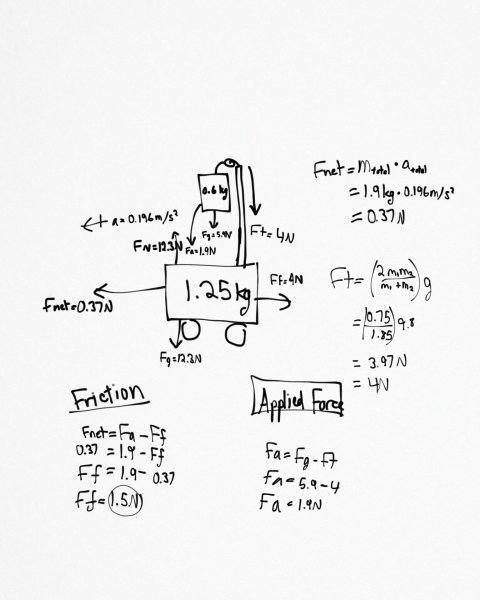 0.6kg
a = 0.196m/s²
Fg=5.9N
FN=12.3N
Fa=1.9N
Ft=4N
1.25kg
Ff=4N
Fnet=0.37N
Fg=12.3N
Fnet = Mtotal · atotal
= 1.9kg · 0.196m/s²
= 0.37N
Ft = (2m₁m₂/m₁+m₂) g
= (0.75/1.85) 9.8
= 3.97N
= 4N
Friction
Fnet = Fa - Ff
0.37 = 1.9 - Ff
Ff = 1.9 - 0.37
Ff = 1.5N
Applied Force
Fa = Fg - Ft
Fa = 5.9 - 4
Fa = 1.9N